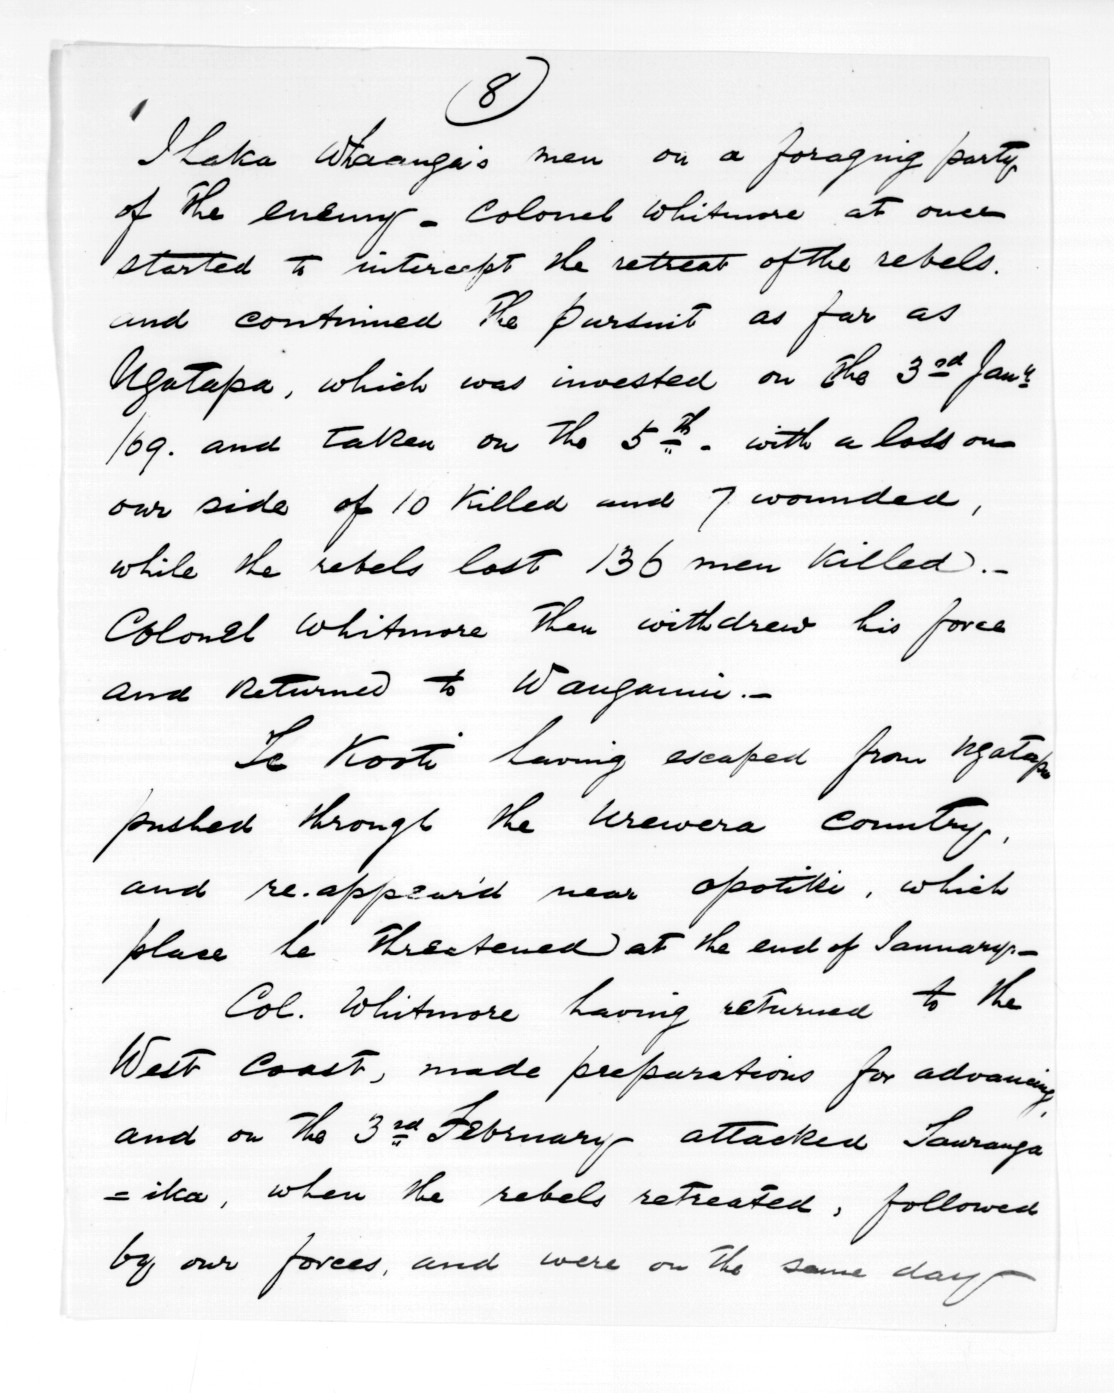 (8)
Ihaka Whaanga's men on a foraging party
of the enemy - Colonel Whitmore at once
started to intercept the retreat of the rebels.
and continued the pursuit as far as
Ngatapa, which was invested on the 3rd Jany
/69. and taken on the 5th. with a loss on
our side of 10 killed and 7 wounded,
while the rebels lost 136 men killed.-
Colonel Whitmore then withdrew his force
and returned to Wanganui.-
Te Kooti having escaped from Ngatapa
pushed through the Urewera Country,
and re.appear'd near Opotiki, which
place he threatened at the end of January-
Col. Whitmore having returned to the
West Coast, made preparations for advancing,
and on the 3rd February attacked Tauranga
=ika, when the rebels retreated, followed
by our forces, and were on the same day